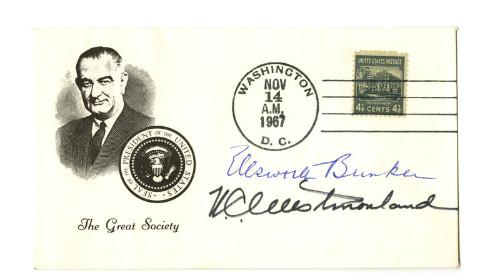 SEAL OF THE PRESIDENT OF THE UNITED STATES
The Great Society
WASHINGTON
NOV
14
A.M.
1967
D. C.
UNITED STATES POSTAGE
4½ CENTS 4½
Ellsworth Bunker
W.C. Westmoreland